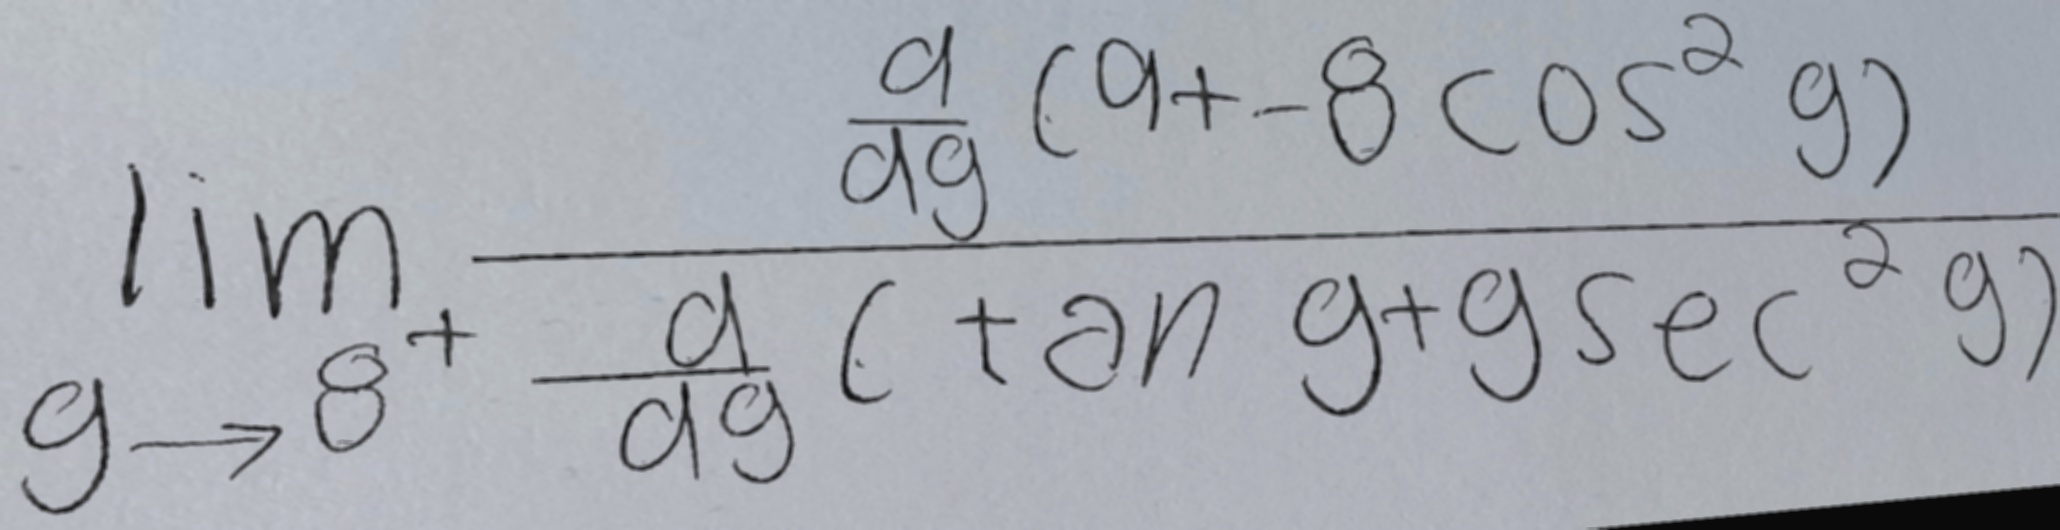 \lim_{g \to 8^+} \frac{\frac{d}{dg}(9+-8\cos^2 g)}{\frac{d}{dg}(\tan g+g\sec^2 g)}